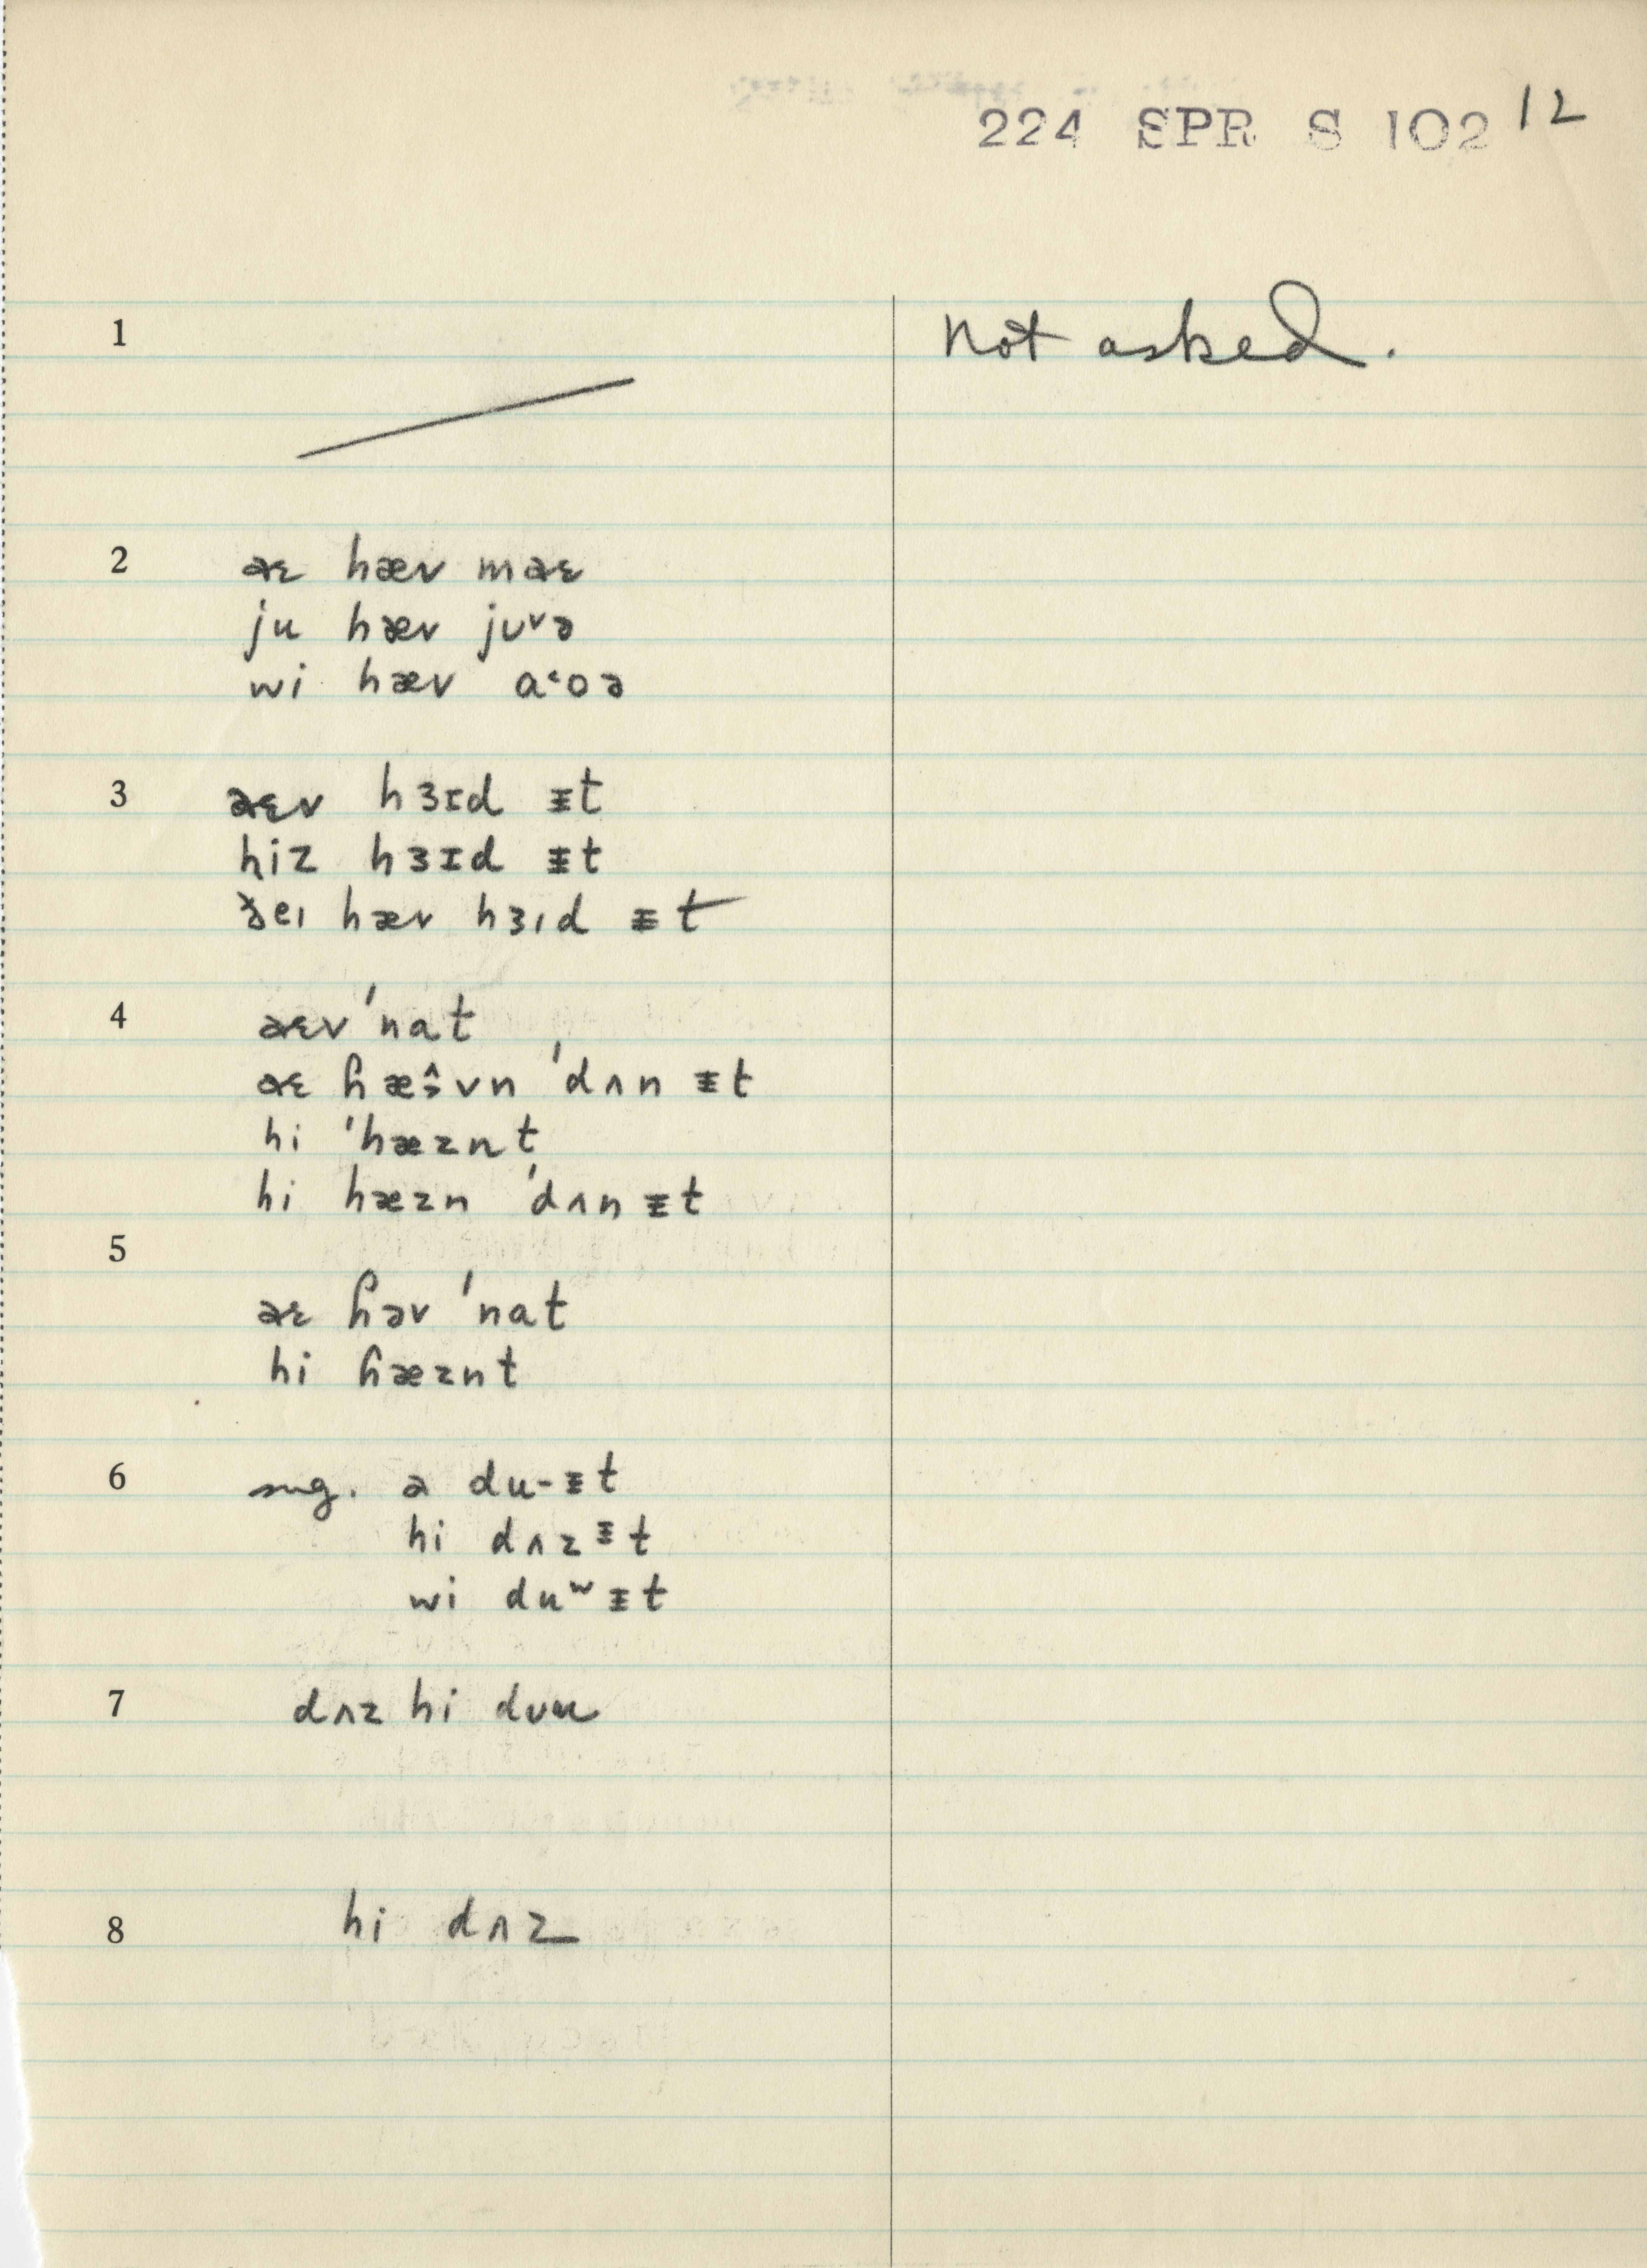 224 SPR S 102 12
1 Not asked.
2 aɛ hæv maɛ
ju hæv jʊ˅ə
wi hæv ɑ˂oə
3 aɛv hɜɪd ᵻt
hiz hɜɪd ᵻt
ðeɪ hæv hɜɪd ᵻt
4 aɛv 'nɑt
aɛ hæ̭vn 'dʌn ᵻt
hi 'hæznt
hi hæzn 'dʌn ᵻt
5
aɛ ɦəv 'nɑt
hi ɦæznt
6 sug. ə du-ᵻt
hi dʌzᵻt
wi duʷᵻt
7 dʌz hi dʊu
8 hi dʌz